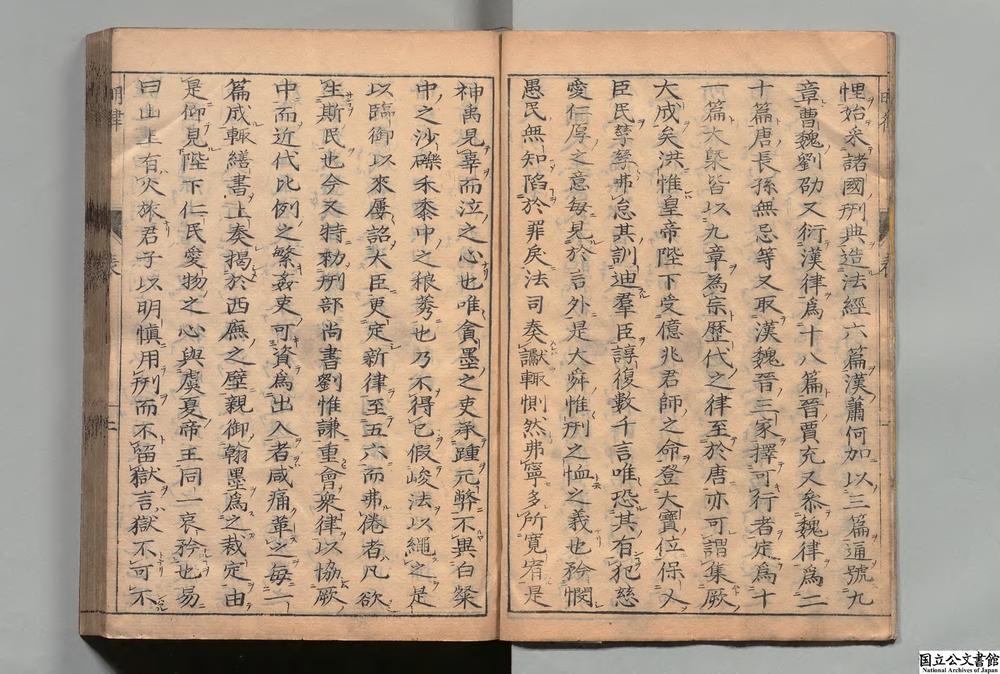 悝始采諸國刑典造法經六篇漢蕭何加以三篇通號九
章曹魏劉劭又衍漢律爲十八篇晉賈充又叅魏律爲二
十篇唐長孫無忌等又取漢魏晉三家擇可行者定爲十
二篇大槩皆以九章為宗歷代之律至於唐亦可謂集厥
大成矣洪惟皇帝陛下受億兆君師之命登大寶位保乂
臣民孳孳弗怠其訓迪羣臣諄復數千言唯恐其有犯慈
愛仁厚之意每見於言外是大舜惟刑之恤之義也矜憫
愚民無知陷於罪戾法司奏讞輒惻然弗寧多所寬宥是
神禹見辜而泣之心也唯貪墨之吏承踵元弊不異白粲
中之沙礫禾黍中之稂莠也乃不得已假峻法以繩之是
以臨御以來屢詔大臣更定新律至五六而弗倦者凡欲
生斯民也今又特勑刑部尚書劉惟謙重會衆律以協厥
中而近代比例之繁姦吏可資爲出入者咸痛革之每一
篇成輒繕書上奏揭於西廡之壁親御翰墨爲之裁定由
是仰見陛下仁民愛物之心與虞夏帝王同一哀矜也易
曰山上有火旅君子以明愼用刑而不留獄言獄不可不
明律
表
二
国立公文書館
National Archives of Japan